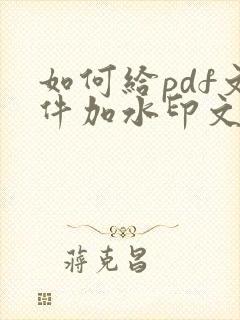 如何給pdf文
件加水印文
蔣克昌